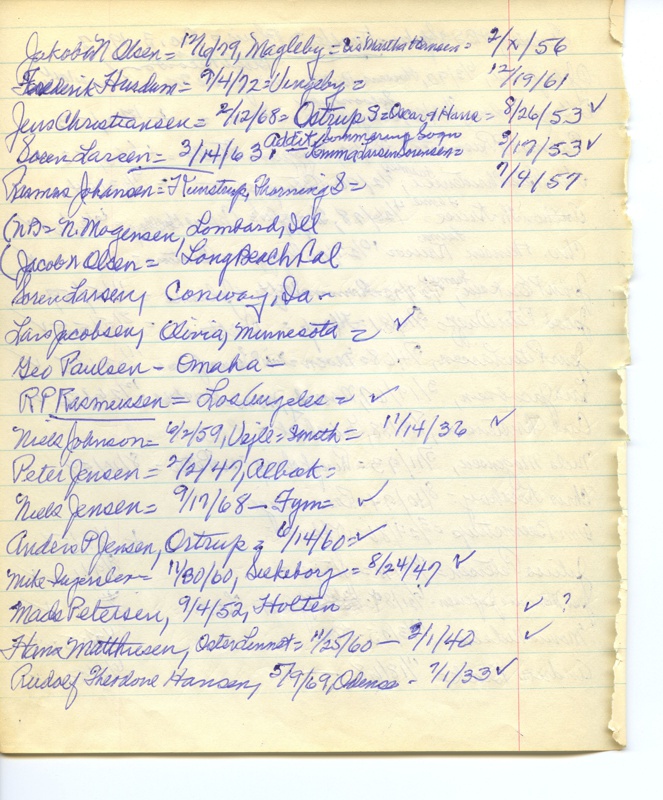 Jakob N Olsen = 12/6/79, Magleby = Sis Martha Hansen = 2/X/56
Frederik Husdum = 9/4/72 = Vengeby = 12/19/61
Jens Christiansen = 2/12/68 = Ostrup S = Oscar & Hans = 8/26/53 ✓
Soren Larsen = 3/14/63, Addit, Emma Larsen Sorensen = 2/17/53 ✓
Rasmus Johansen = Hinstrup, Thorning S = 7/4/57
(NB = N. Mogensen, Lombard, Ill
(Jacob N Olsen = Long Beach Cal
Soren Larsen, Conway, Ia -
Lars Jacobsen, Olivia, Minnesota = ✓
Geo Paulsen - Omaha -
R P Rasmussen = Los Angeles = ✓
Niels Johnson = 6/2/59, Vejle = Smith = 11/14/36 ✓
Peter Jensen = 2/2/47, Albæk =
Niels Jensen = 9/17/68 - Fyn = ✓
Anders P Jensen, Ostrup = 6/14/60 = ✓
Mike = 11/30/60, = 8/24/47 ✓
Mads Petersen, 9/4/52, Holten ✓ ?
Hans Matthiesen, Oster Linnet = 11/25/60 - 2/1/40 ✓
Rudolf Theodore Hansen, 5/9/69, Odense - 7/1/33 ✓